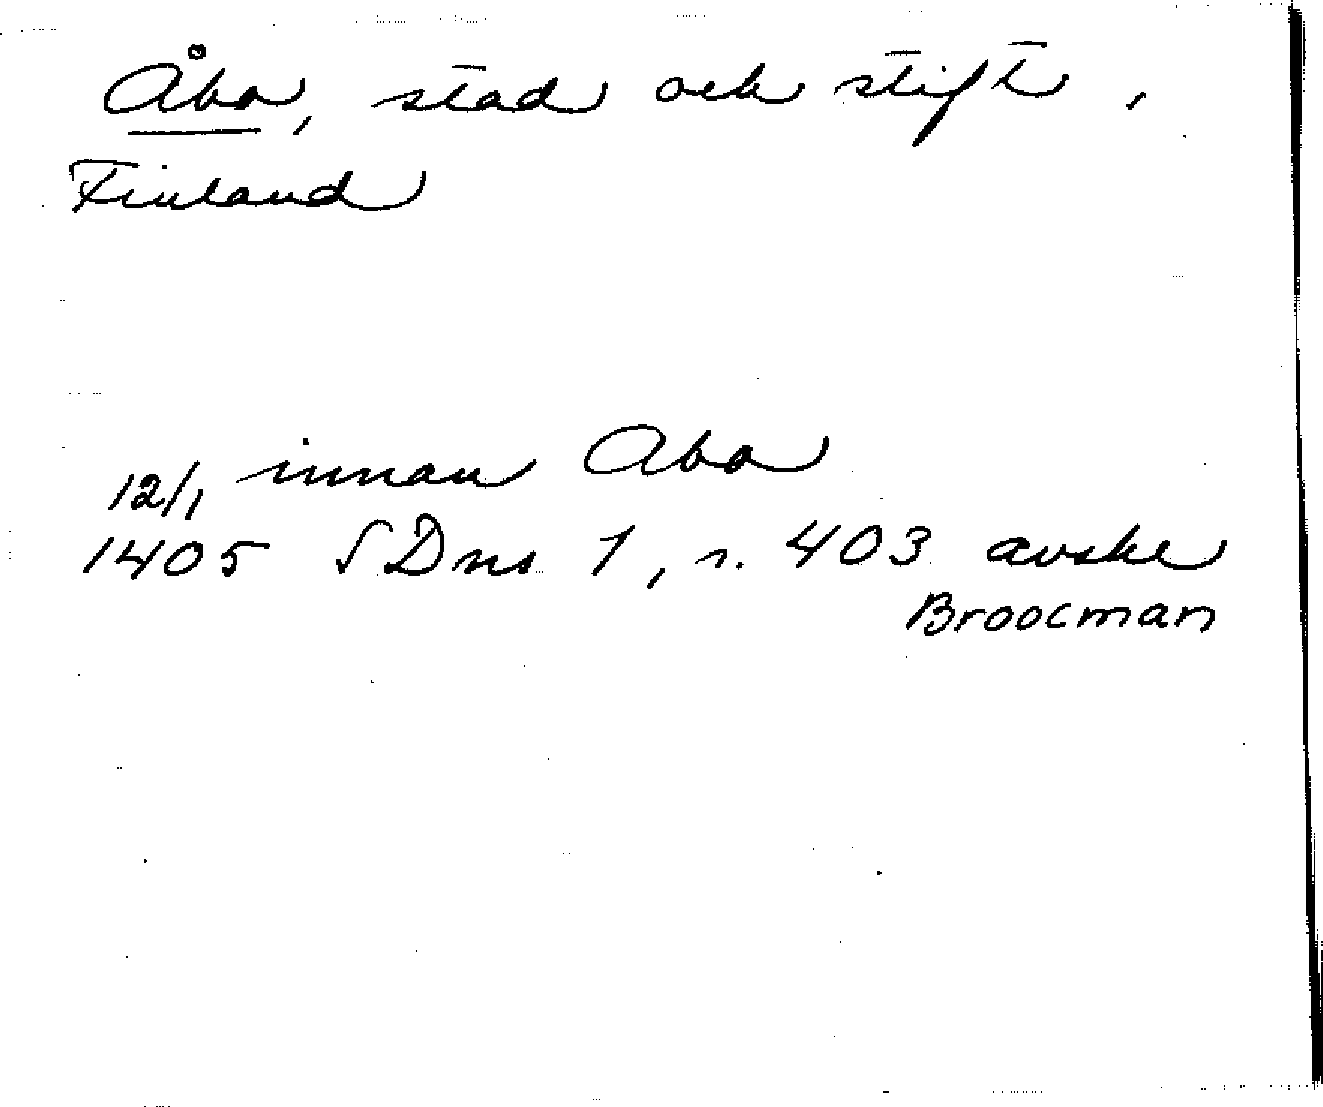 Åbo, stad och stift,
Finland
12/1 innan Abo
1405 SDns 1, s. 403 avskr
Broocman